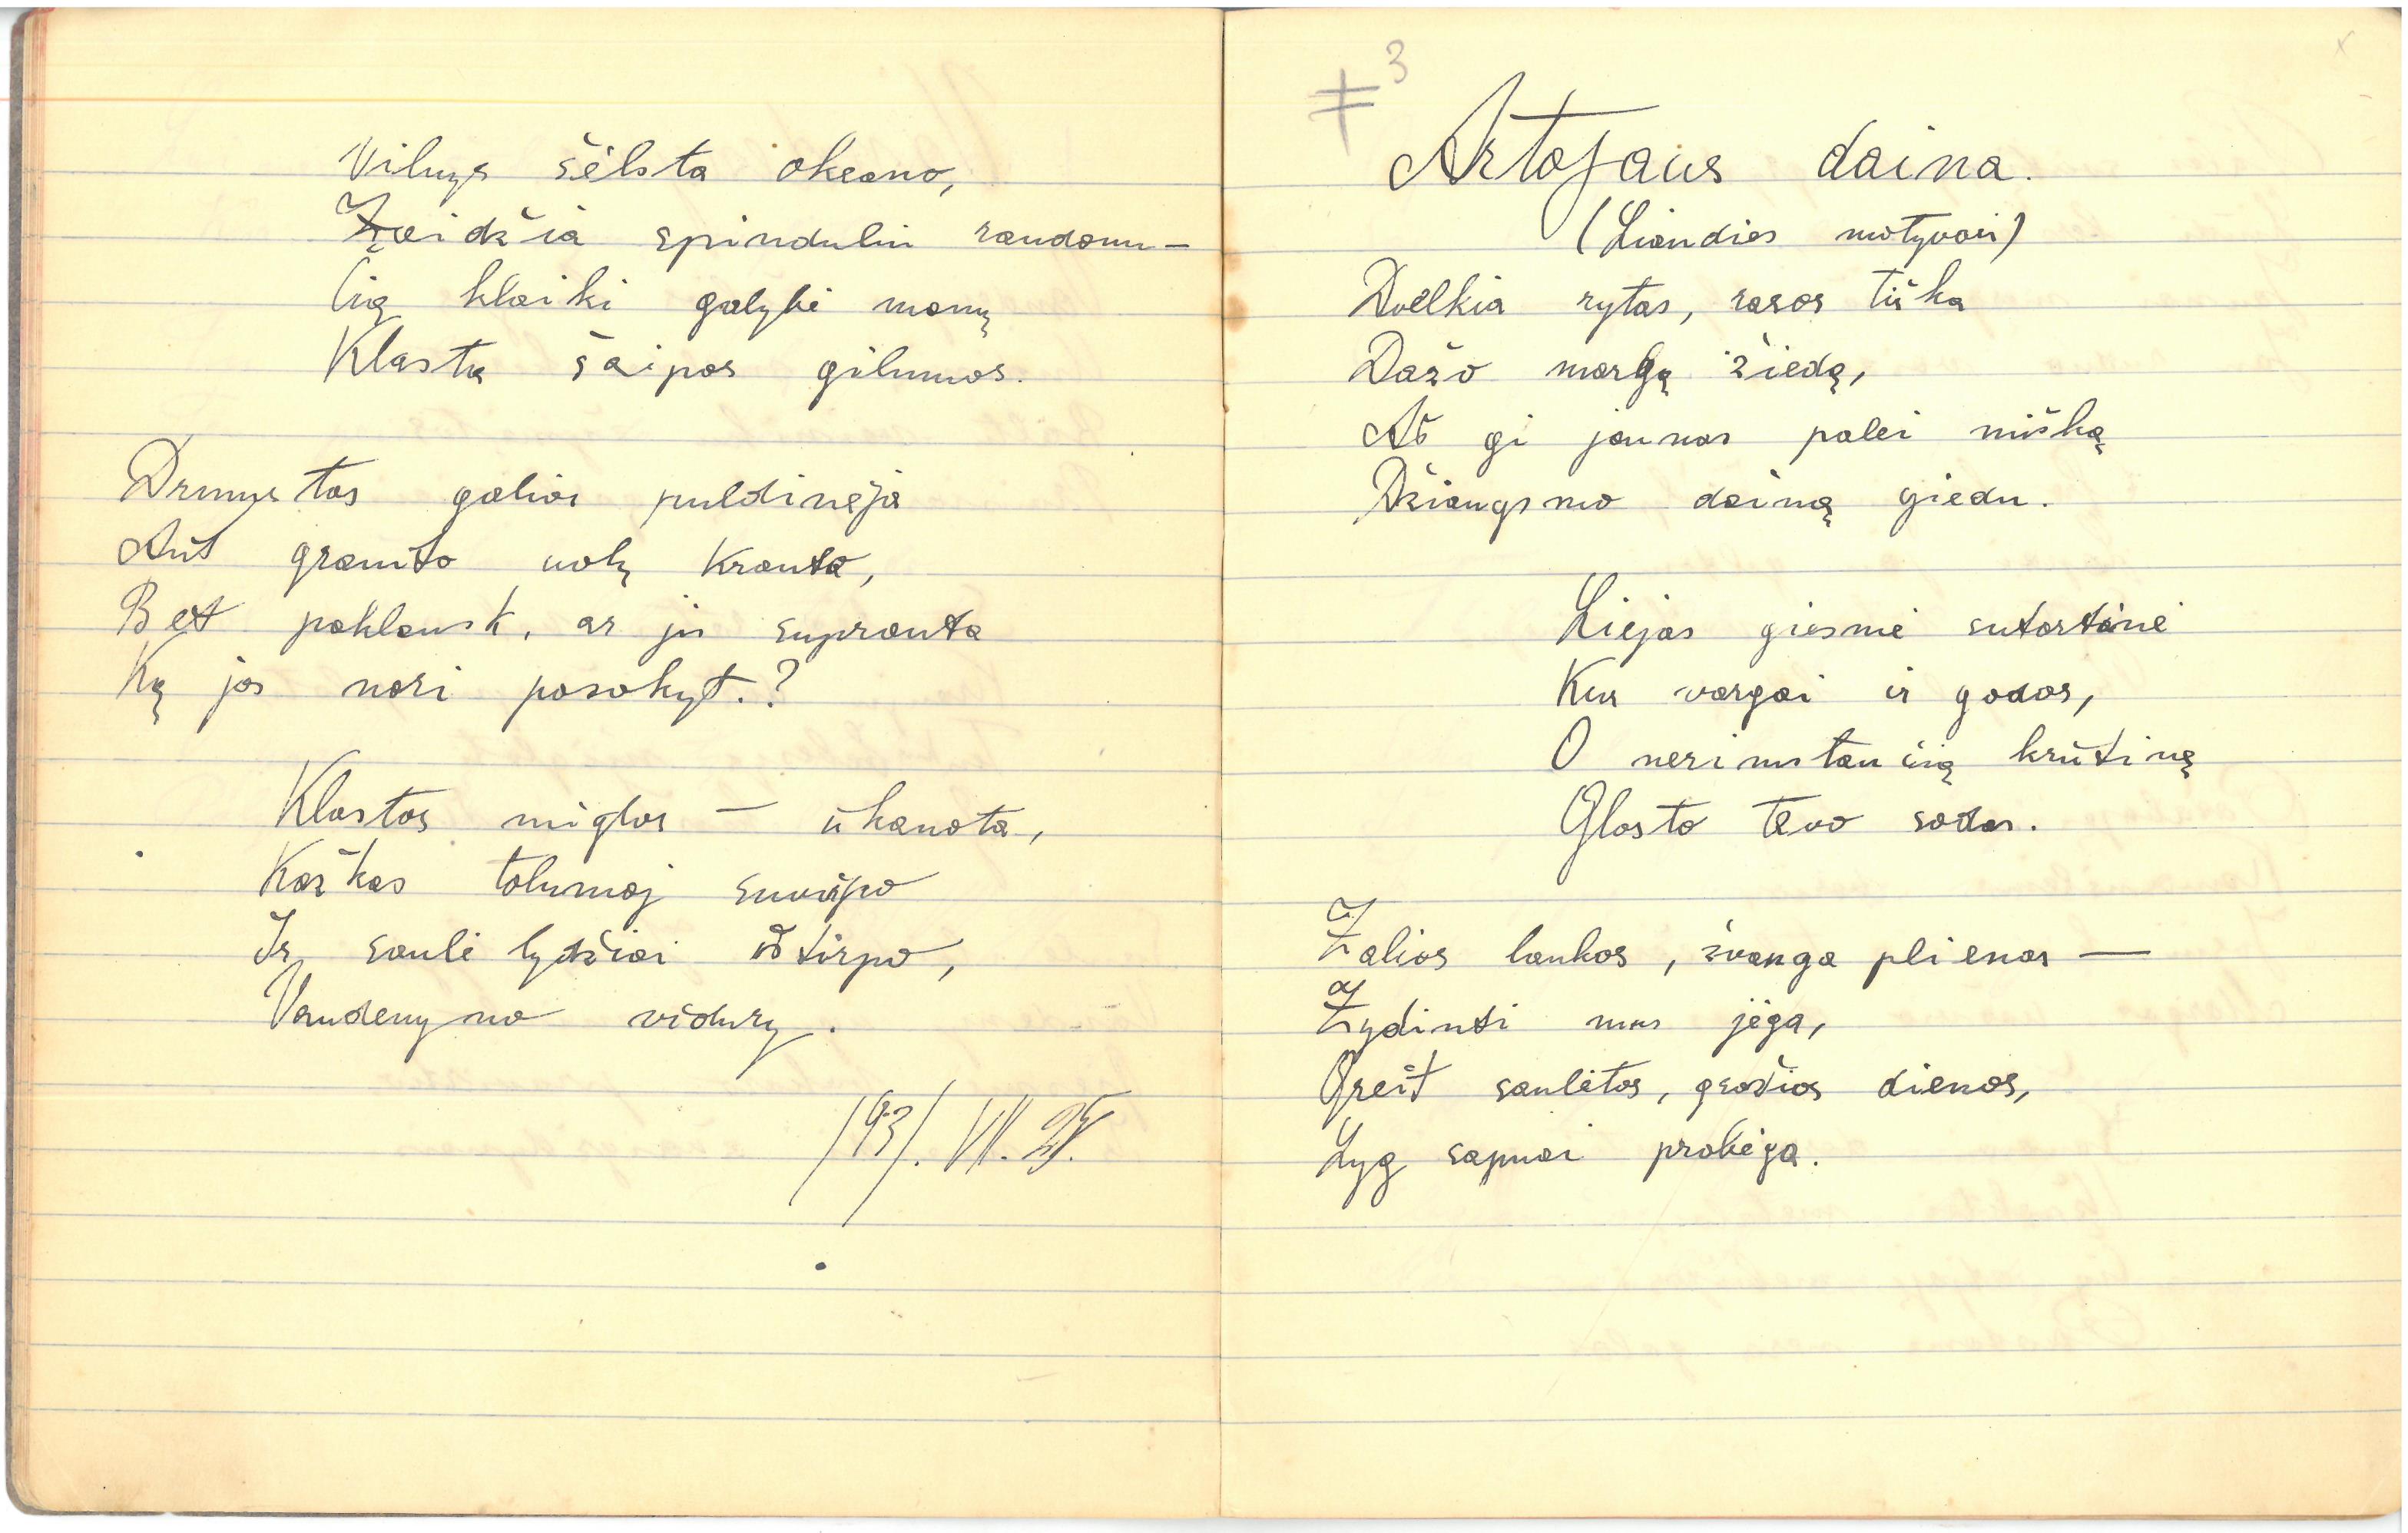 Vilnys šėlsta okeano,
Žaidžia spinduliu raudonu –
Čia klaiki galybė manų
Klasta šaipos gilumos.
Drumstas galias puldinėja
Ant granito uolų kranta,
Bet paklausk, ar jis supranta
Ką jos nori pasakyt.?
Klastos miglos – ūkanota,
Kažkas tolumoj suvirpo
Ir saulė lydžiai ištirpo,
Vandenyno vidury.
1931. VII. 25.
3
Artojaus daina.
(Liaudies motyvais)
Dvelkia rytas, rasos tiška
Dažo margą žiedą,
Aš gi jaunas palei mišką
Džiaugsmo dainą giedu.
Liejas giesmė sutartinė
Kur vargai ir godos,
O nerimstančią krūtinę
Glosto tėvo sodas.
Žalios lankos, žvanga plienas —
Žydinti mus jėga,
Greit saulėtos, gražios dienos,
Lyg sapnai prabėga.